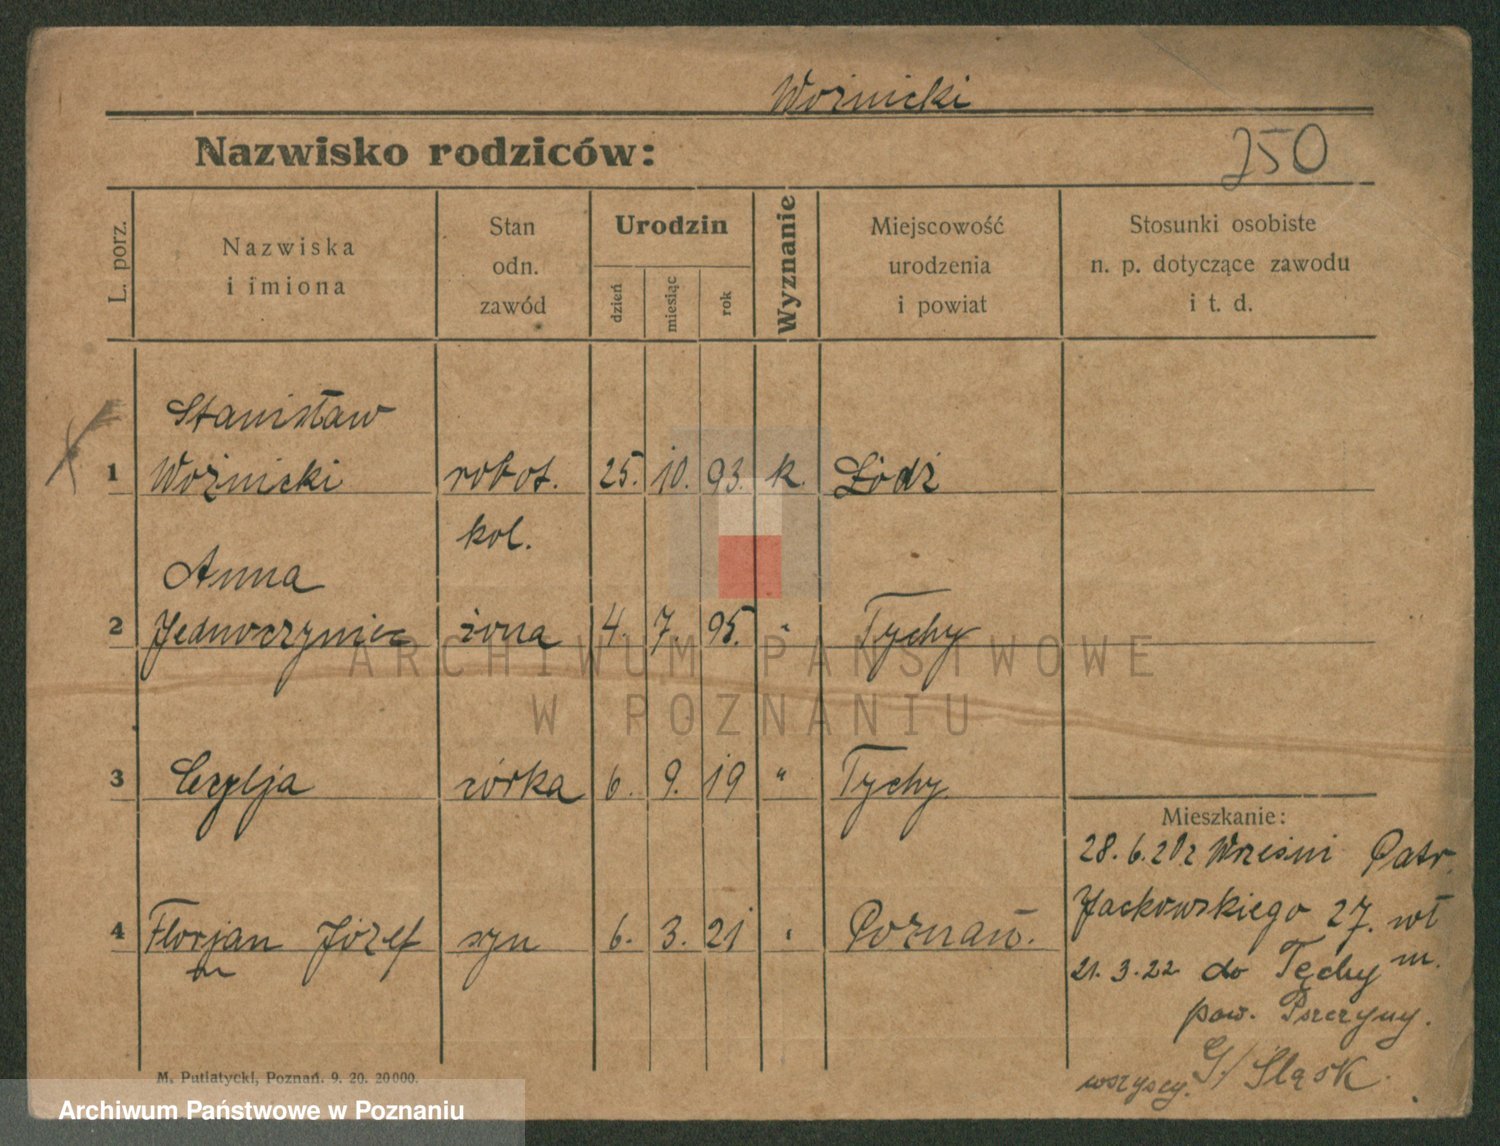 Woźnicki
Nazwisko rodziców:
250
L. porz.
Nazwiska
i imiona
Stan
odn.
zawód
Urodzin
dzień
miesiąc
rok
Wyznanie
Miejscowość
urodzenia
i powiat
Stosunki osobiste
n. p. dotyczące zawodu
i t. d.
Stanisław
1 Woźnicki robot. 25. 10. 93. k. Łódź
kol.
Anna
2 Jednoczyniec żona 4. 7. 95. " Tychy
ARCHIWUM PAŃSTWOWE
W POZNANIU
3 Cezylja córka 6. 9. 19 " Tychy
Mieszkanie:
28.6.20 z Wrześni Patr.
Jackowskiego 27. wł
4 Florjan Józef syn 6. 3. 21 " Poznań.
m.
21.3.22 do Tychy
pow. Pszczyny.
G/Śląsk.
wszyscy.
M. Putiatycki, Poznań. 9. 20. 20000.
Archiwum Państwowe w Poznaniu